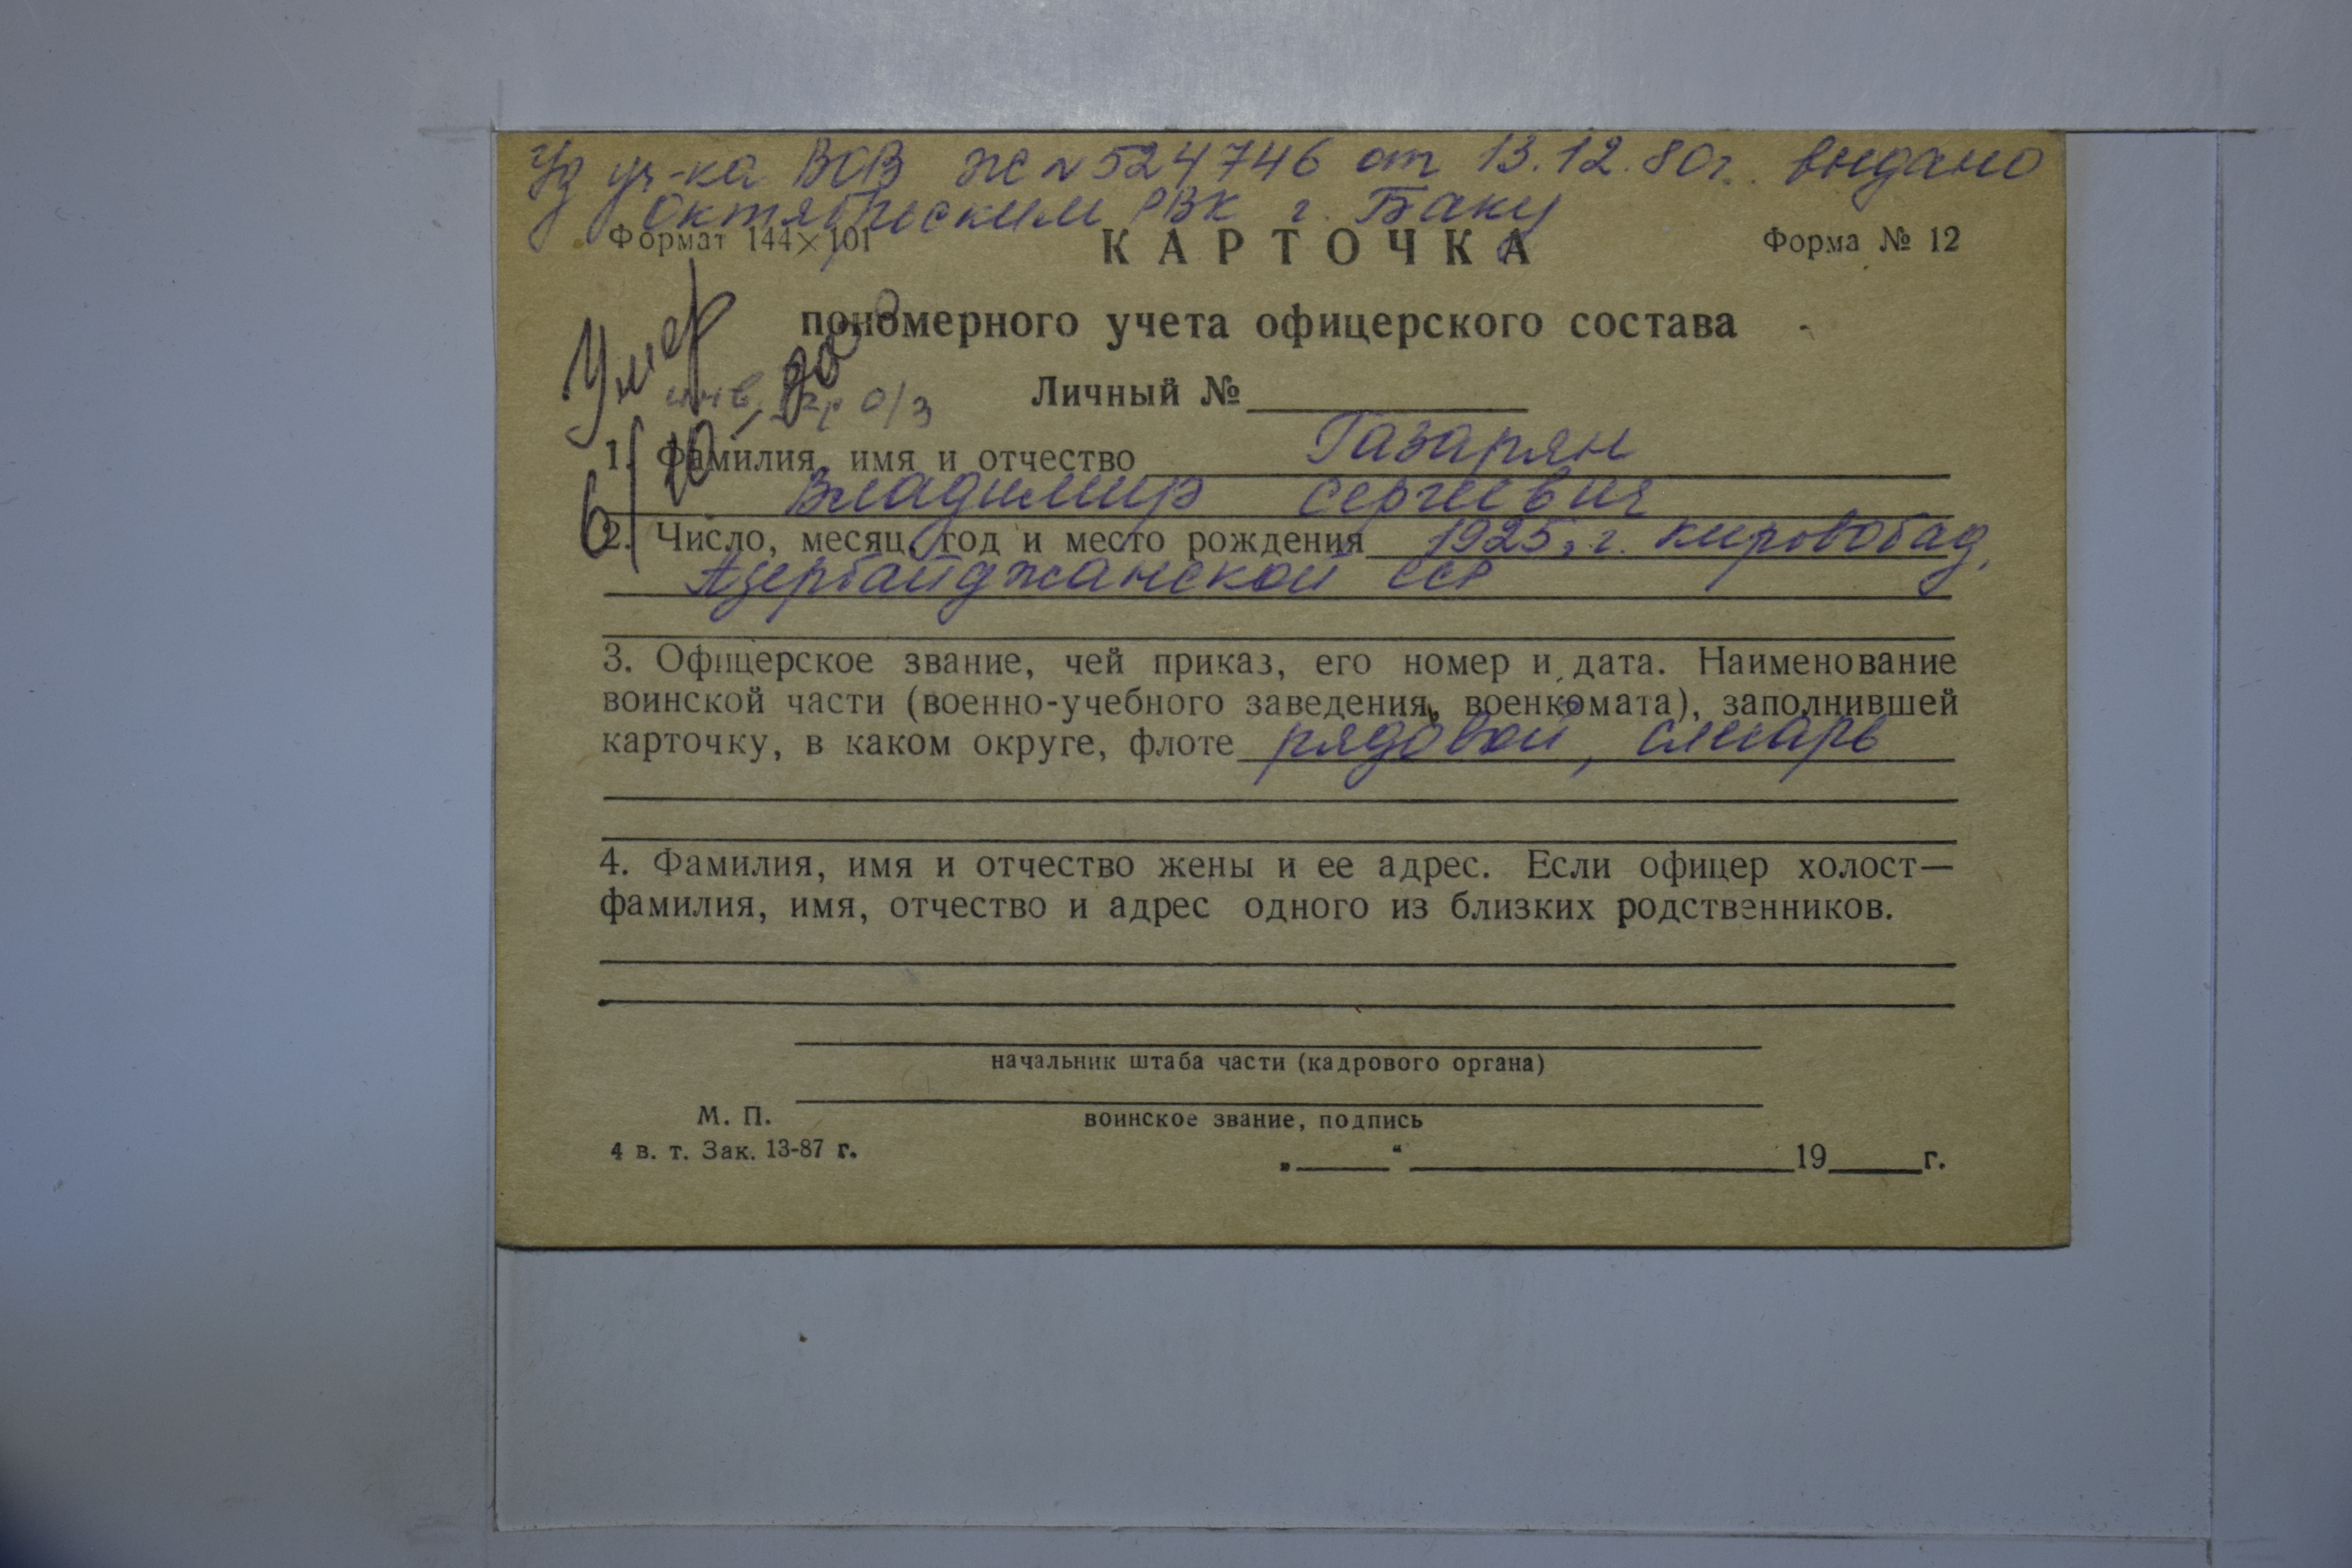 Уд уч-ка ВОВ Ж N 524746 от 13.12.80г. выдано
Октябрьским РВК г. Баку
Формат 144×101
КАРТОЧКА
Форма № 12
пономерного учета офицерского состава
Умер
инв. 2гр о/з
Личный №
1. Фамилия, имя и отчество Газарян
Владимир Сергеевич
2. Число, месяц, год и место рождения 1925, г. Кировобад,
Азербайджанской ССР
3. Офицерское звание, чей приказ, его номер и дата. Наименование
воинской части (военно-учебного заведения, военкомата), заполнившей
карточку, в каком округе, флоте рядовой, слесарь
4. Фамилия, имя и отчество жены и ее адрес. Если офицер холост—
фамилия, имя, отчество и адрес одного из близких родственников.
начальник штаба части (кадрового органа)
М. П.
воинское звание, подпись
4 в. т. Зак. 13-87 г.
„ “ 19 г.